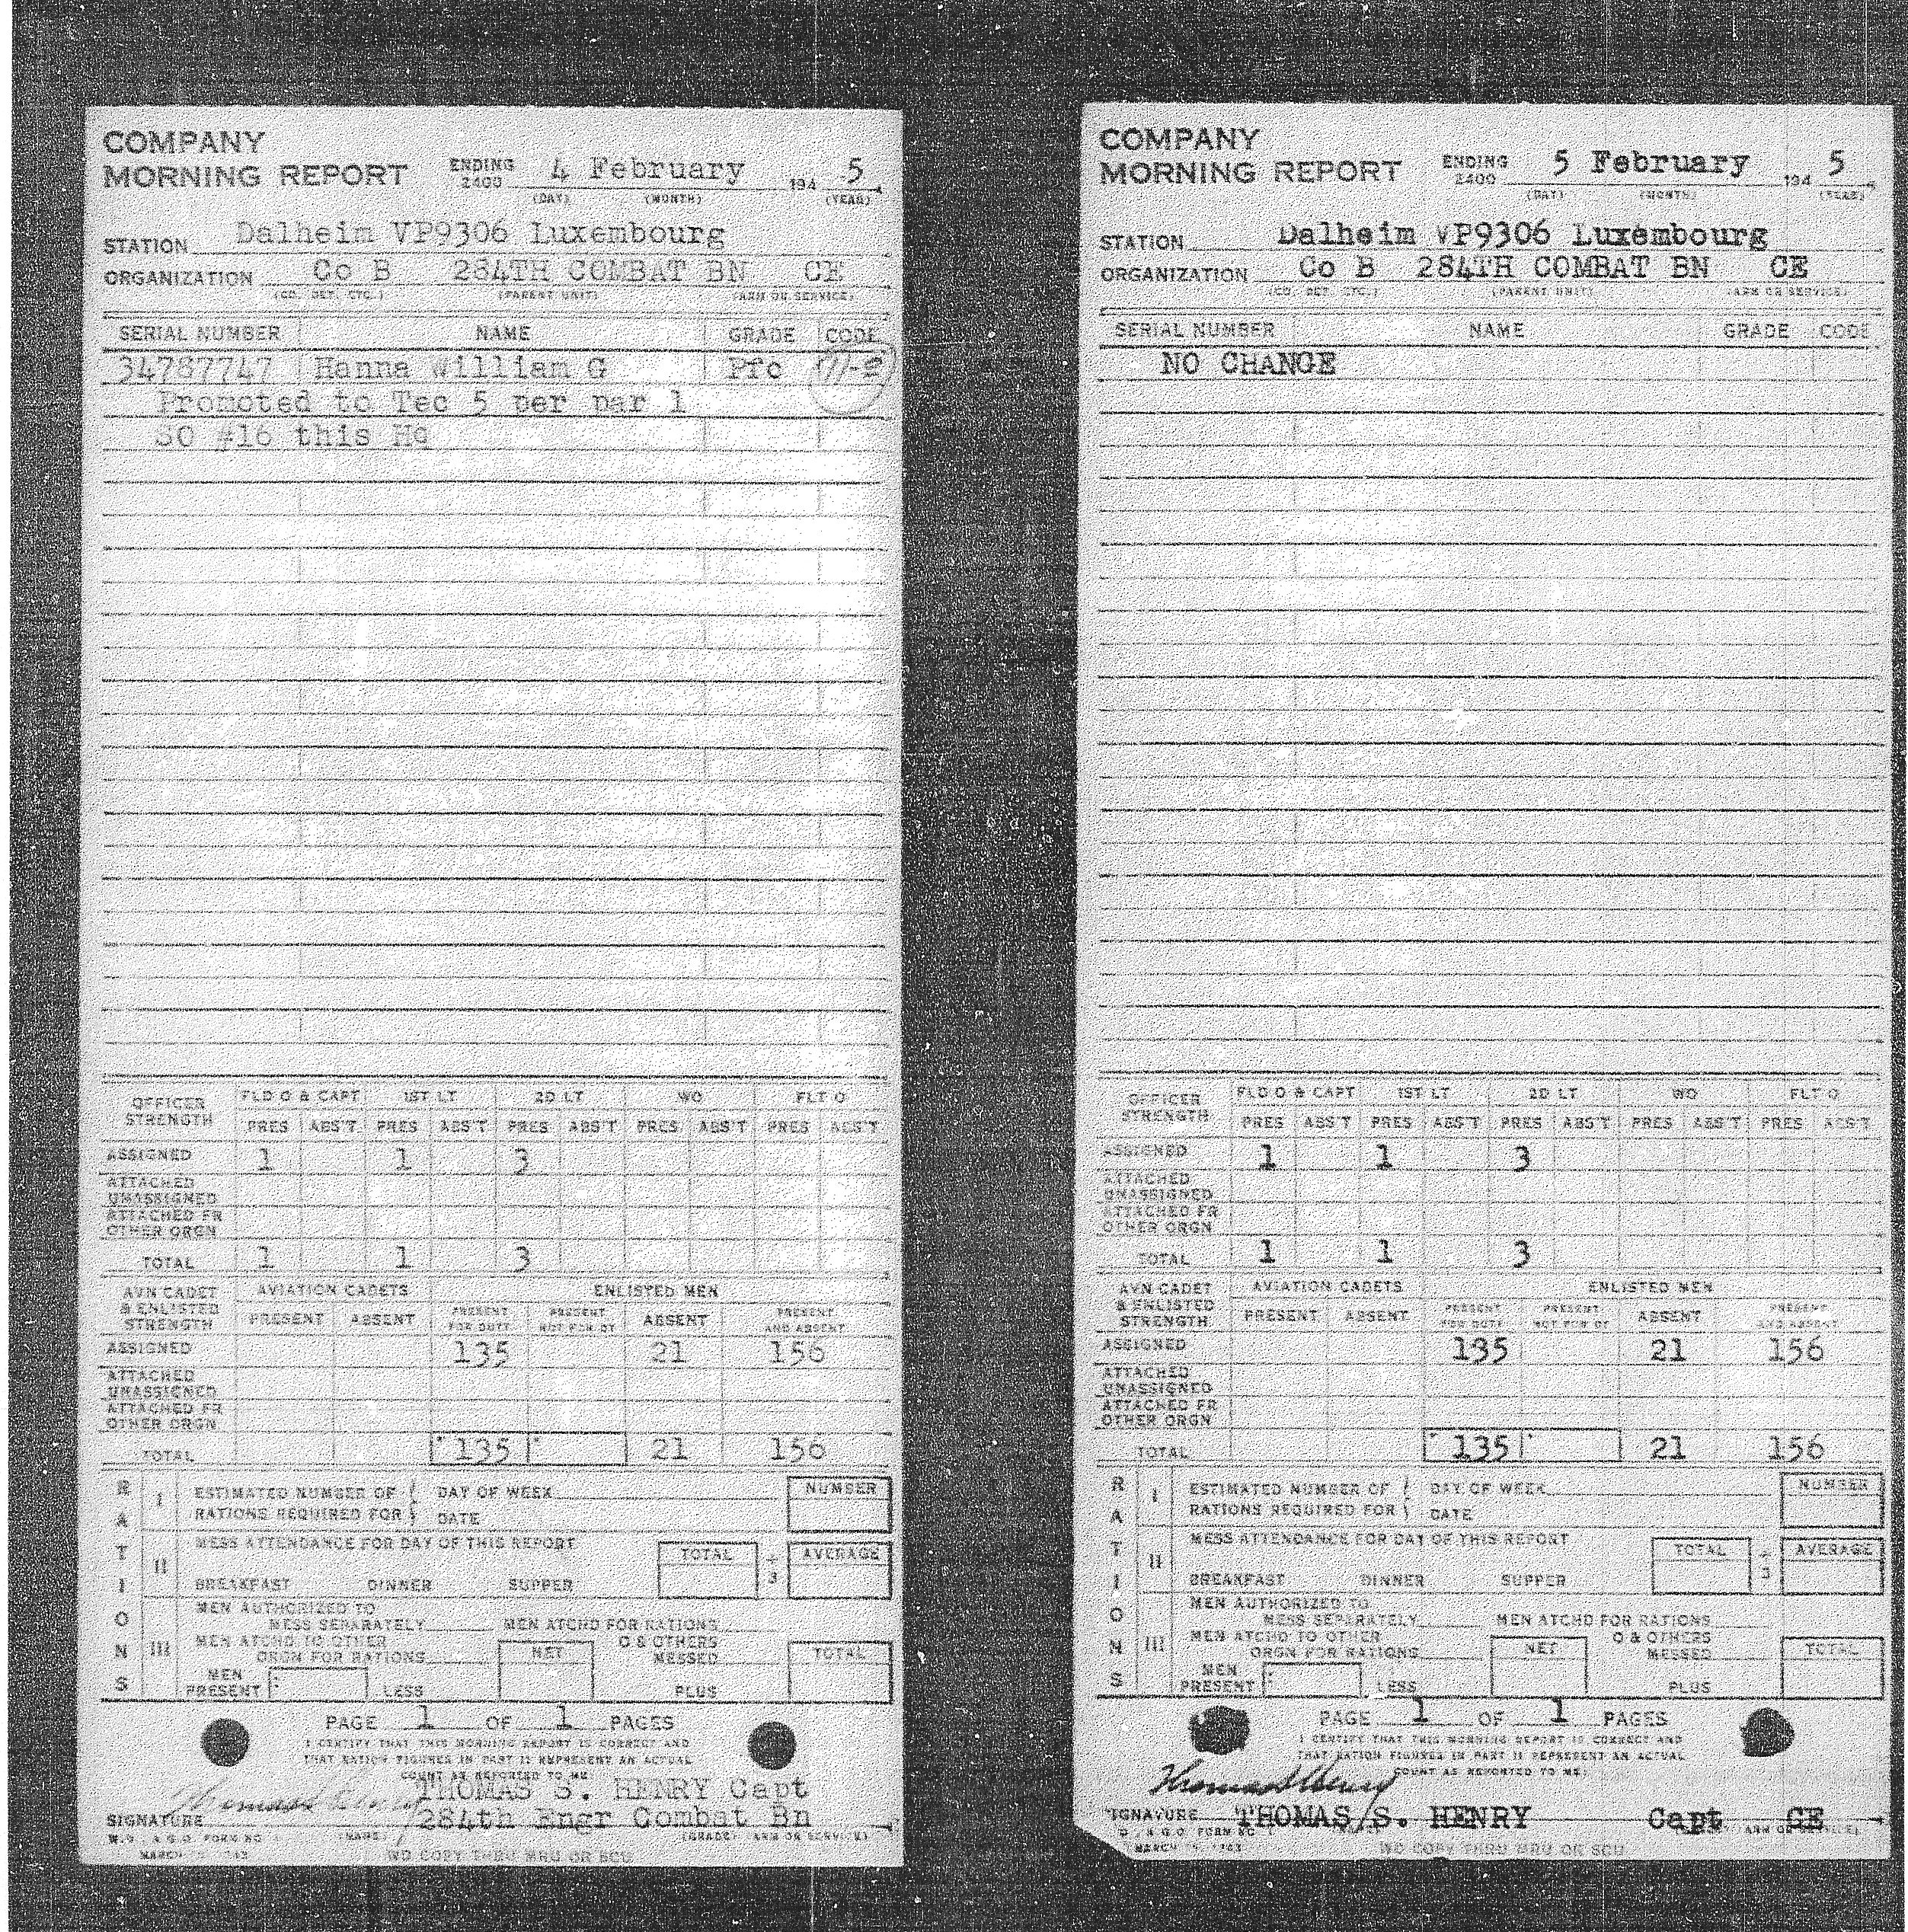 COMPANY
MORNING REPORT ENDING 2400 4 February 194 5
(DAY) (MONTH) (YEAR)
STATION Dalheim VP9306 Luxembourg
ORGANIZATION Co B 284TH COMBAT BN CE
(CO. DET. ETC.) (PARENT UNIT) (ARM OR SERVICE)
SERIAL NUMBER NAME GRADE CODE
34787747 Hanna William G Pfc
Promoted to Tec 5 per par 1
SO #16 this Hq
OFFICER STRENGTH FLD O & CAPT 1ST LT 2D LT WO FLT O
PRES ABS'T PRES ABS'T PRES ABS'T PRES ABS'T PRES ABS'T
ASSIGNED 1 1 3
ATTACHED UNASSIGNED
ATTACHED FR OTHER ORGN
TOTAL 1 1 3
AVN CADET & ENLISTED STRENGTH AVIATION CADETS ENLISTED MEN
PRESENT ABSENT PRESENT FOR DUTY PRESENT NOT FOR DY ABSENT PRESENT AND ABSENT
ASSIGNED 135 21 156
ATTACHED UNASSIGNED
ATTACHED FR OTHER ORGN
TOTAL 135 21 156
RATIONS
I ESTIMATED NUMBER OF DAY OF WEEK NUMBER
RATIONS REQUIRED FOR DATE
II MESS ATTENDANCE FOR DAY OF THIS REPORT TOTAL ÷ 3 AVERAGE
BREAKFAST DINNER SUPPER
III MEN AUTHORIZED TO
MESS SEPARATELY MEN ATCHD FOR RATIONS
MEN ATCHD TO OTHER ORGN FOR RATIONS NET O & OTHERS MESSED TOTAL
MEN PRESENT LESS PLUS
PAGE 1 OF 1 PAGES
I CERTIFY THAT THIS MORNING REPORT IS CORRECT AND
THAT RATION FIGURES IN PART II REPRESENT AN ACTUAL
COUNT AS REPORTED TO ME
Thomas S Henry THOMAS S. HENRY Capt
SIGNATURE 284th Engr Combat Bn
(NAME) (GRADE) ARM OR SERVICE)
W.D., A.G.O. FORM NO 1
MARCH 1943 WD COPY THRU MRU OR SCU
COMPANY
MORNING REPORT ENDING 2400 5 February 194 5
(DAY) (MONTH) (YEAR)
STATION Dalheim VP9306 Luxembourg
ORGANIZATION Co B 284TH COMBAT BN CE
(CO. DET. ETC.) (PARENT UNIT) (ARM OR SERVICE)
SERIAL NUMBER NAME GRADE CODE
NO CHANGE
OFFICER STRENGTH FLD O & CAPT 1ST LT 2D LT WO FLT O
PRES ABS'T PRES ABS'T PRES ABS'T PRES ABS'T PRES ABS'T
ASSIGNED 1 1 3
ATTACHED UNASSIGNED
ATTACHED FR OTHER ORGN
TOTAL 1 1 3
AVN CADET & ENLISTED STRENGTH AVIATION CADETS ENLISTED MEN
PRESENT ABSENT PRESENT FOR DUTY PRESENT NOT FOR DY ABSENT PRESENT AND ABSENT
ASSIGNED 135 21 156
ATTACHED UNASSIGNED
ATTACHED FR OTHER ORGN
TOTAL 135 21 156
RATIONS
I ESTIMATED NUMBER OF DAY OF WEEK NUMBER
RATIONS REQUIRED FOR DATE
II MESS ATTENDANCE FOR DAY OF THIS REPORT TOTAL ÷ 3 AVERAGE
BREAKFAST DINNER SUPPER
III MEN AUTHORIZED TO
MESS SEPARATELY MEN ATCHD FOR RATIONS
MEN ATCHD TO OTHER ORGN FOR RATIONS NET O & OTHERS MESSED TOTAL
MEN PRESENT LESS PLUS
PAGE 1 OF 1 PAGES
I CERTIFY THAT THIS MORNING REPORT IS CORRECT AND
THAT RATION FIGURES IN PART II REPRESENT AN ACTUAL
COUNT AS REPORTED TO ME
Thomas S Henry
SIGNATURE THOMAS S. HENRY Capt CE
ARM OR SERVICE)
A.G.O. FORM NO 1
MARCH 1943 WD COPY THRU MRU OR SCU